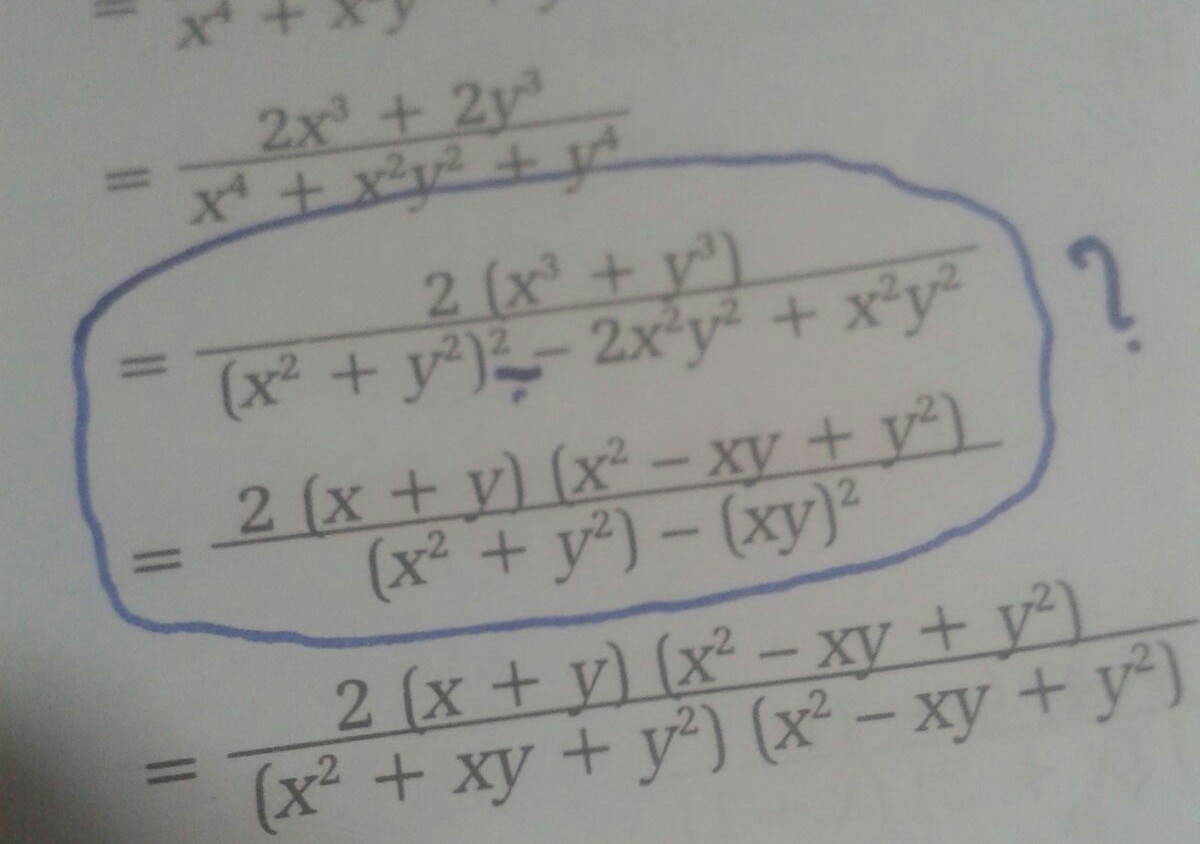 = x⁴ + x²y
= (2x³ + 2y³) / (x⁴ + x²y² + y⁴)
= 2 (x³ + y³) / ((x² + y²)² − 2x²y² + x²y²)
?
= 2 (x + y) (x² − xy + y²) / ((x² + y²) − (xy)²)
= 2 (x + y) (x² − xy + y²) / ((x² + xy + y²) (x² − xy + y²))